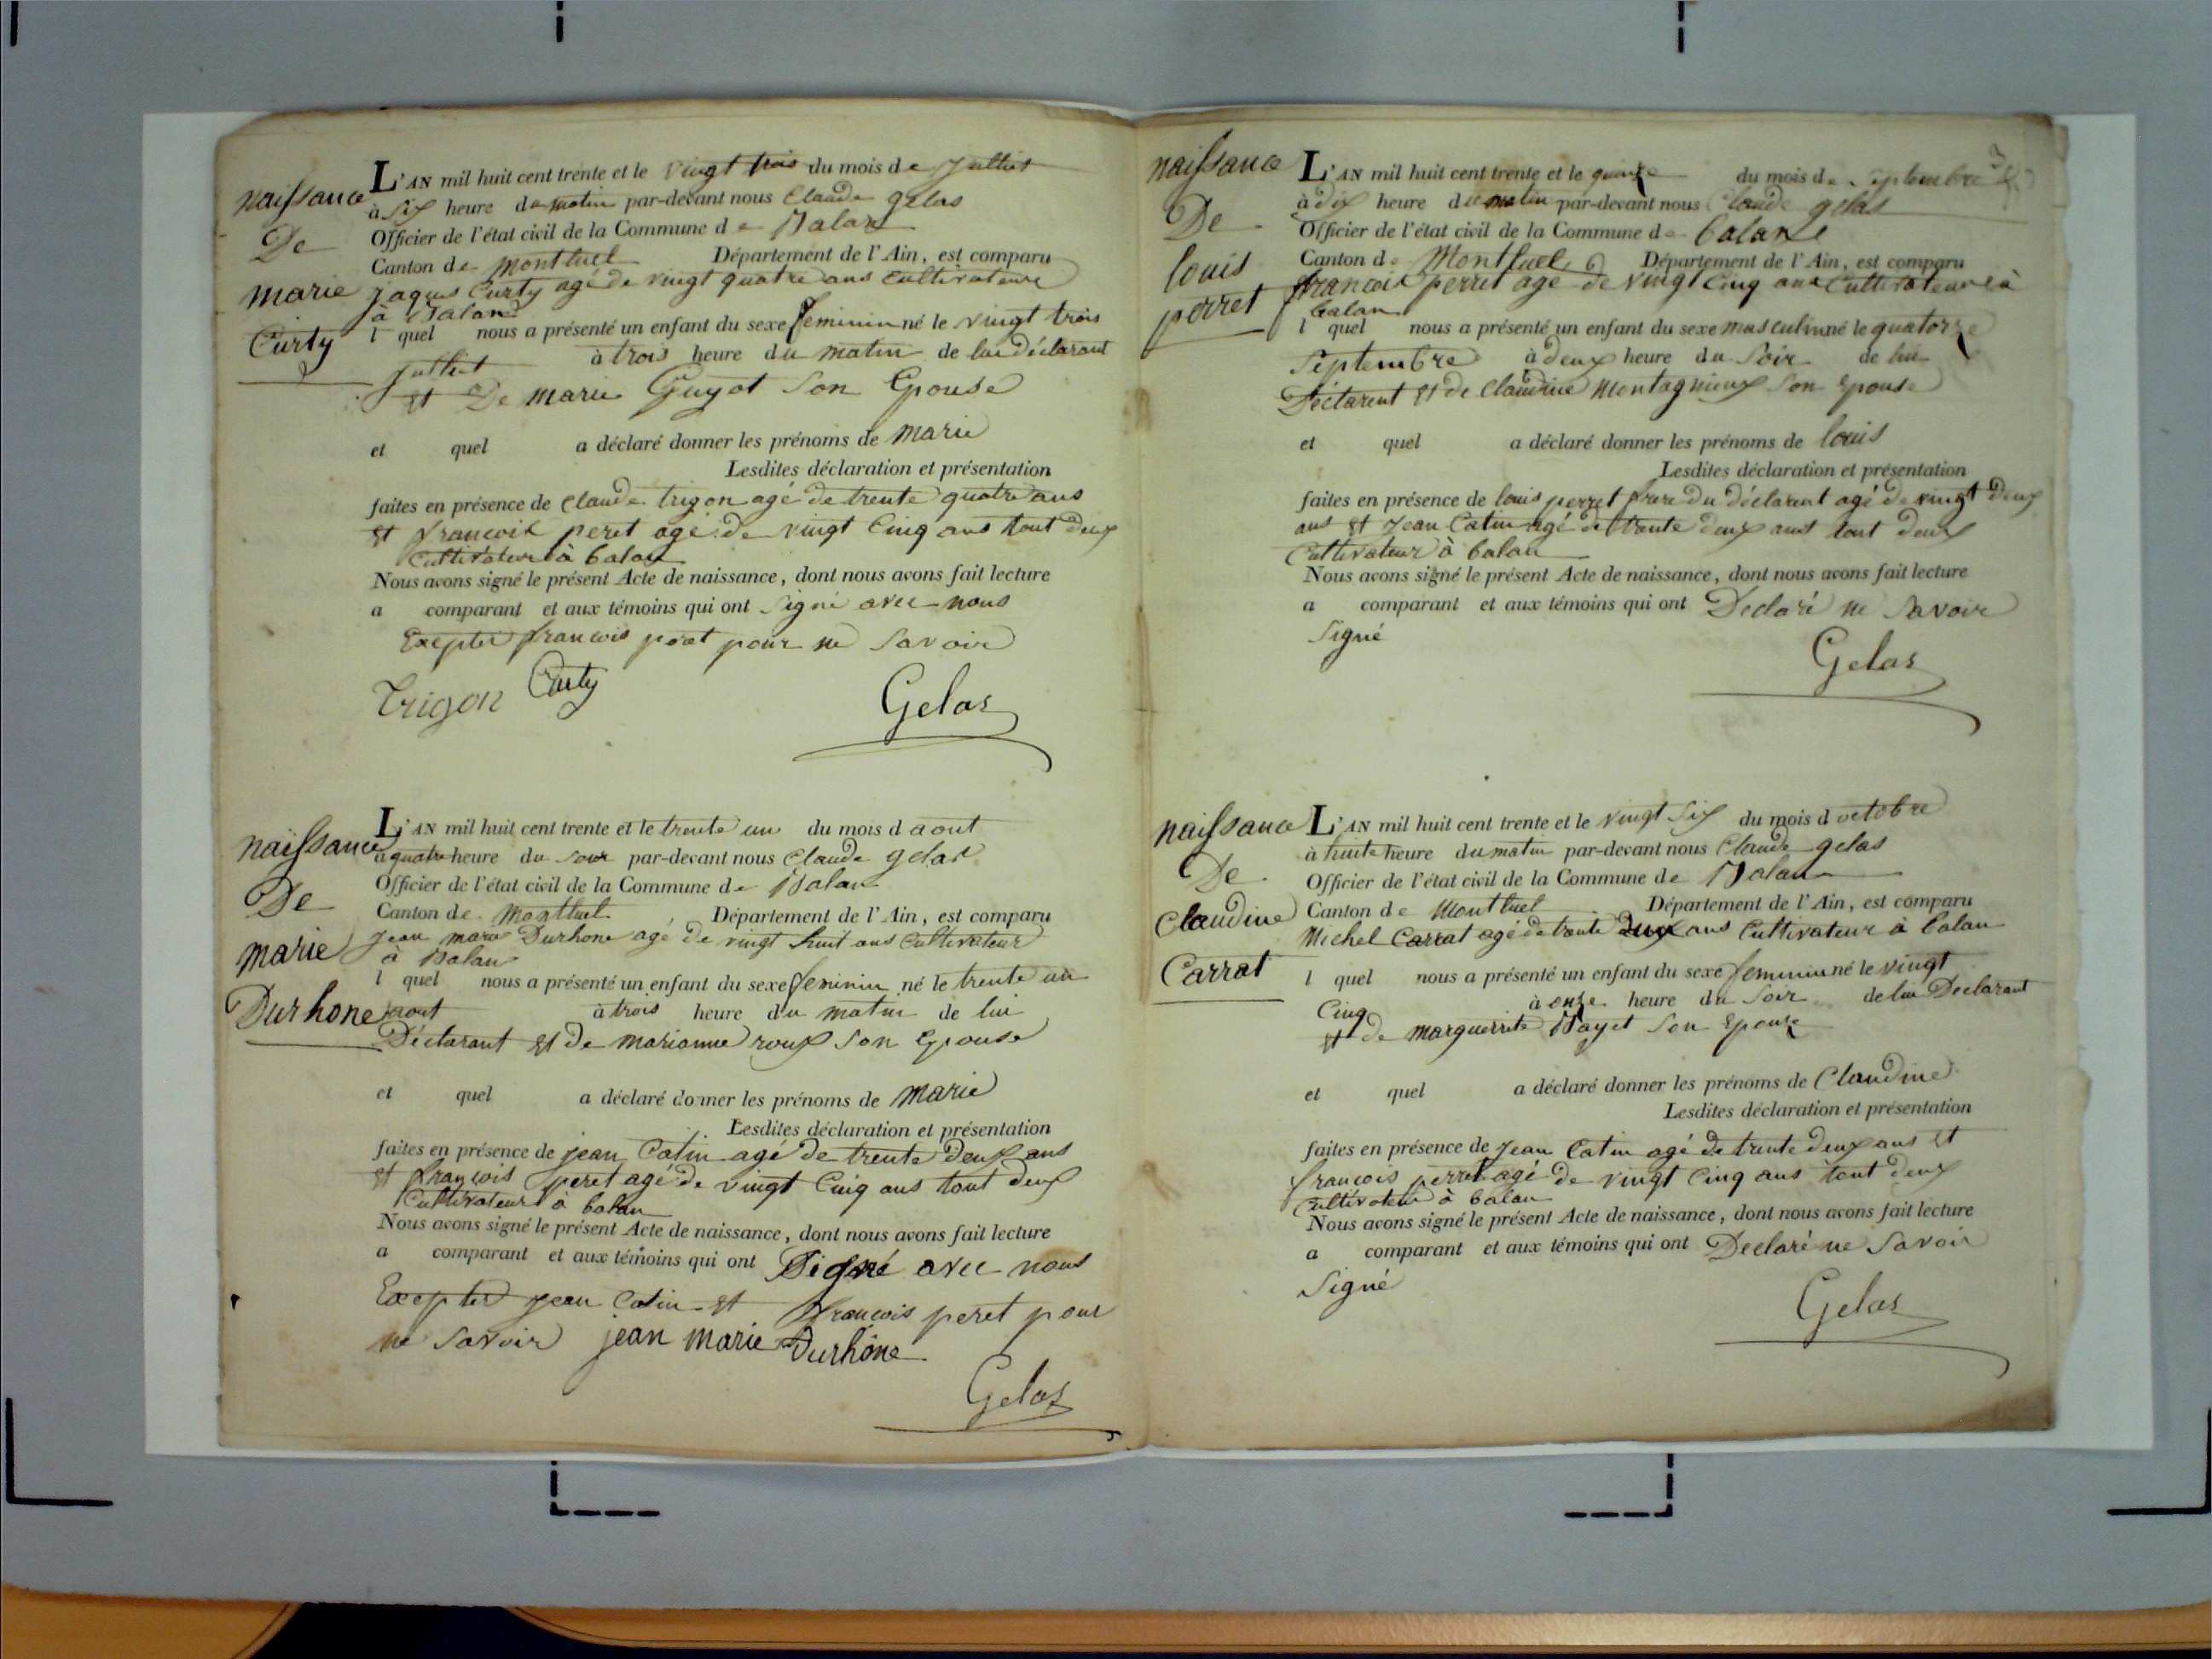 naissance
De
marie
Curty
L'AN mil huit cent trente et le vingt trois du mois de Juillet
à Six heure du matin par-devant nous Claude gelas
Officier de l'état civil de la Commune de Balan
Canton de Montluel Département de l'Ain, est comparu
jaques Curty agé de vingt quatre ans Cultivateur
à Balan
l quel nous a présenté un enfant du sexe feminin né le vingt trois
Juillet à trois heure du matin de lui déclarant
et De marie Guyot Son Epouse
et quel a déclaré donner les prénoms de marie
Lesdites déclaration et présentation
faites en présence de Claude trigon agé de trente quatre ans
et francois peret agé de vingt Cinq ans tout deux
Cultivateur à balan
Nous avons signé le présent Acte de naissance, dont nous avons fait lecture
a comparant et aux témoins qui ont Signé avec nous
Excepter francois peret pour ne Savoir
Trigon Curty Gelas
naissance
De
marie
Durhone
L'AN mil huit cent trente et le trente un du mois d aout
a quatre heure du Soir par-devant nous Claude gelas
Officier de l'état civil de la Commune de Balan
Canton de Montluel Département de l'Ain, est comparu
Jean marie Durhone agé de vingt huit ans Cultivateur
à Balan
l quel nous a présenté un enfant du sexe feminin né le trente un
aout à trois heure du matin de lui
Déclarant et de marianne roux Son Epouse
et quel a déclaré donner les prénoms de marie
Lesdites déclaration et présentation
faites en présence de jean Catin agé de trente deux ans
et francois peret agé de vingt Cinq ans tout deux
Cultivateur à balan
Nous avons signé le présent Acte de naissance, dont nous avons fait lecture
a comparant et aux témoins qui ont Signé avec nous
Excepter jean Catin et francois peret pour
ne Savoir jean marie Durhône
Gelas
naissance
De
louis
perret
L'AN mil huit cent trente et le quinze du mois de Septembre
à dix heure du matin par-devant nous Claude gelas
Officier de l'état civil de la Commune de balan
Canton de Montluel Département de l'Ain, est comparu
francois perret agé de vingt Cinq ans Cultivateur à
balan
l quel nous a présenté un enfant du sexe masculin né le quatorze
Septembre à deux heure du Soir de lui
Déclarent et de Claudine Montagnieux Son Epouse
et quel a déclaré donner les prénoms de louis
Lesdites déclaration et présentation
faites en présence de louis perret frere du déclarent agé de vingt deux
ans et Jean Catin agé de trente deux ans tout deux
Cultivateur à balan
Nous avons signé le présent Acte de naissance, dont nous avons fait lecture
a comparant et aux témoins qui ont Declaré ne Savoir
Signé
Gelas
naissance
De
Claudine
Carrat
L'AN mil huit cent trente et le vingt Six du mois d octobre
à huite heure du matin par-devant nous Claude gelas
Officier de l'état civil de la Commune de Balan
Canton de Montluel Département de l'Ain, est comparu
Michel Carrat agé de trente deux ans Cultivateur à balan
l quel nous a présenté un enfant du sexe feminin né le vingt
Cinq à onze heure du Soir de lui Declarant
et de marguerrite Bayet Son Epouze
et quel a déclaré donner les prénoms de Claudine
Lesdites déclaration et présentation
faites en présence de Jean Catin agé de trente deux ans et
francois perret agé de vingt Cinq ans tout deux
Cultivateur à balan
Nous avons signé le présent Acte de naissance, dont nous avons fait lecture
a comparant et aux témoins qui ont Declaré ne Savoir
Signé
Gelas